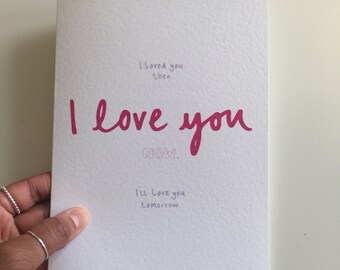 I loved you
then.
I love you
NOW.
I'll love you
tomorrow.